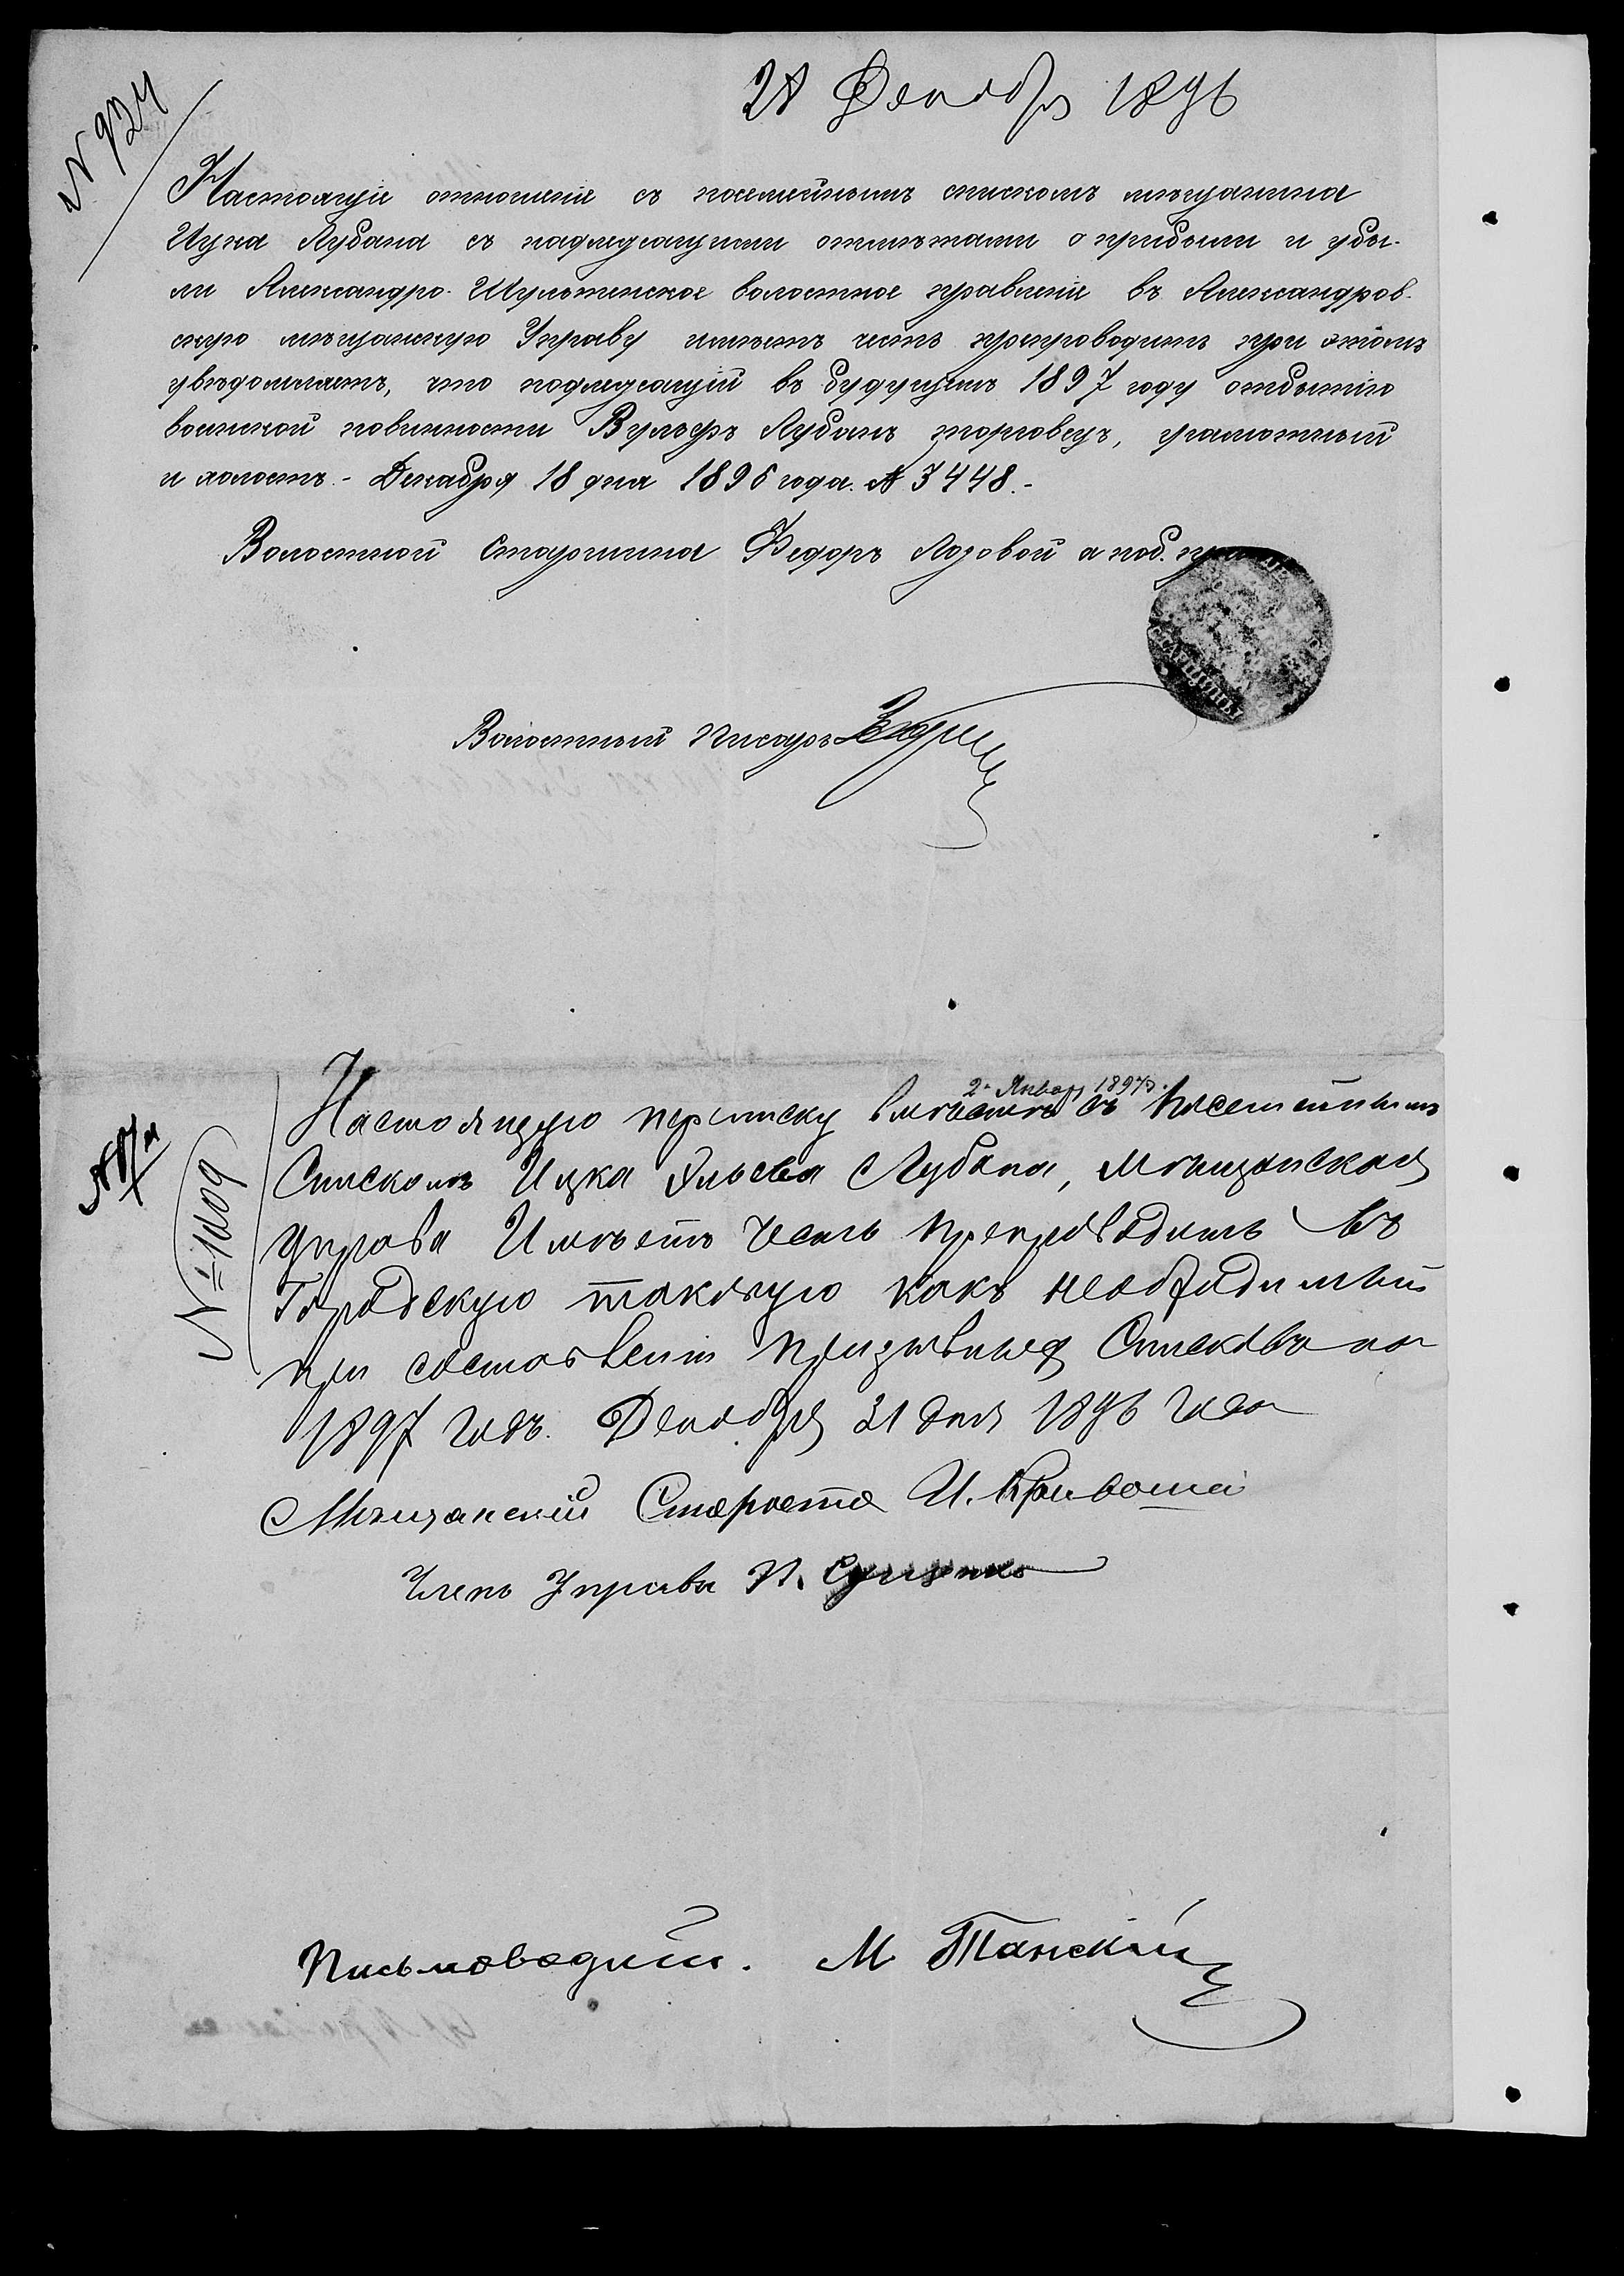 28 Декабря 1896
N 924
Настоящіе отношеніе съ посемейнымъ спискомъ мѣщанина
Ицка Лубана съ надлежащими отмѣтками о прибыли и убы-
ли Александро-Шультинское волостное правленіе въ Александров-
скую мѣщанскую Управу имѣетъ честь препроводить при этомъ
увѣдомляетъ, что подлежащій въ будущемъ 1897 году отбытію
воинской повинности Вульфъ Лубанъ торговецъ, грамотный
и холостъ. - Декабря 18 дня 1896 года. № 3448. -
Волостной Старшина Федоръ Лозовой а под.
Волостный Писарь
2 Января 1897 г.
Настоящую переписку вмѣстѣ съ Посемейнымъ
Спискомъ Ицка Эльева Лубана, Мѣщанская
Управа Имѣетъ честь препроводить въ
Городскую таковую какъ необходимый
при составленіи призывныхъ Списковъ на
1897 годъ. Декабря 31 дня 1896 года
№ 1009
Мѣщанскій Староста И. Кривоше
Членъ Управы И.
Письмоводит. М Танскій